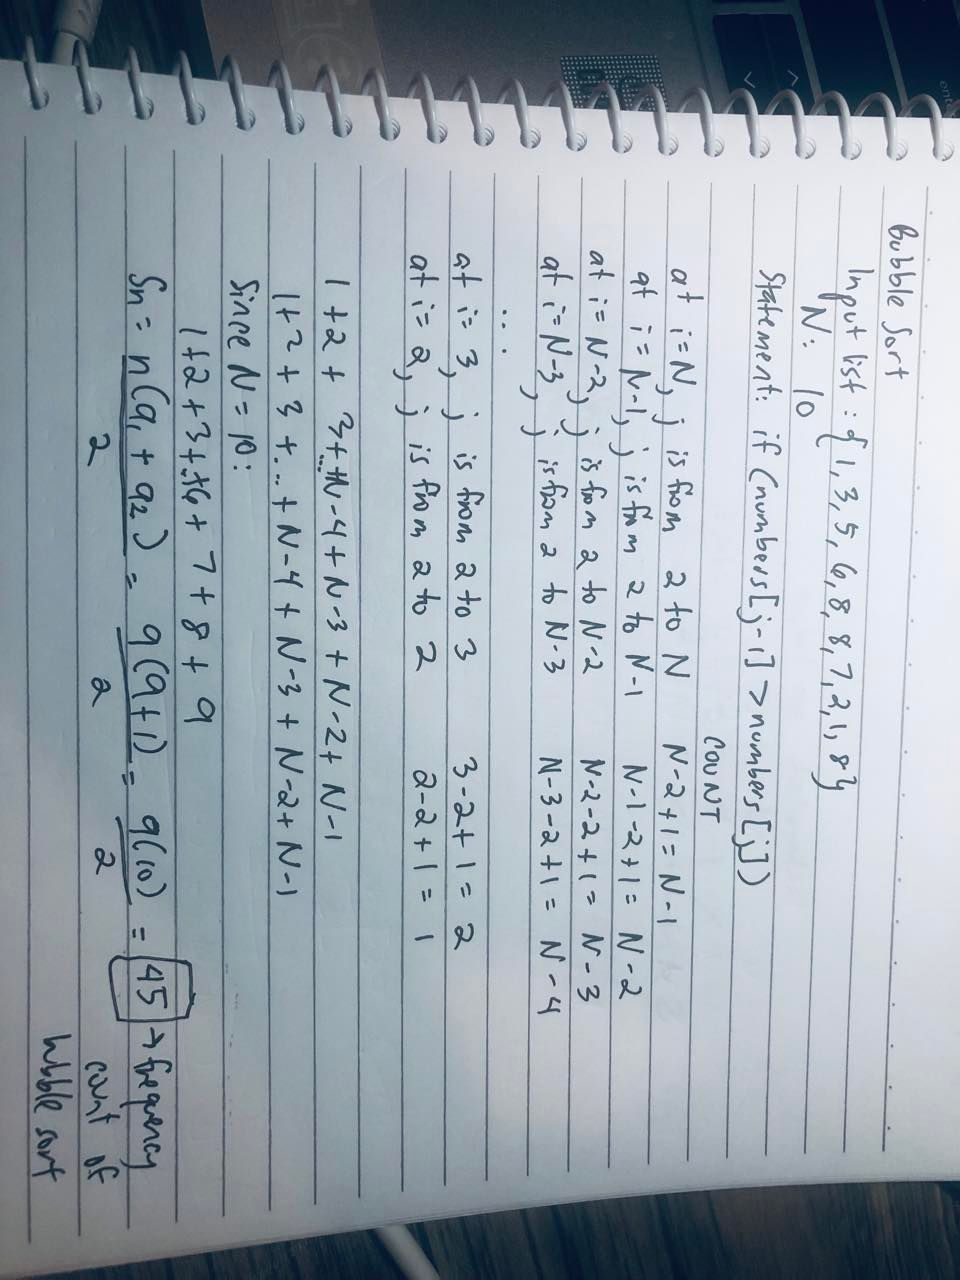 Bubble Sort
Input list : {1, 3, 5, 6, 8, 8, 7, 2, 1, 8}
N: 10
Statement: if (numbers[j-1] > numbers[j])
COUNT
at i=N, j is from 2 to N N-2+1 = N-1
at i=N-1, j is from 2 to N-1 N-1-2+1 = N-2
at i=N-2, j is from 2 to N-2 N-2-2+1 = N-3
at i=N-3, j is from 2 to N-3 N-3-2+1 = N-4
...
at i=3, j is from 2 to 3 3-2+1 = 2
at i=2, j is from 2 to 2 2-2+1 = 1
1+2+ 3+...+N-4+N-3+N-2+N-1
1+2+3+...+N-4+N-3+N-2+N-1
Since N=10:
1+2+3+...+6+7+8+9
Sn = n(a1 + a2) = 9(9+1) = 9(10) = 45 → frequency
2 2 2 count of
bubble sort